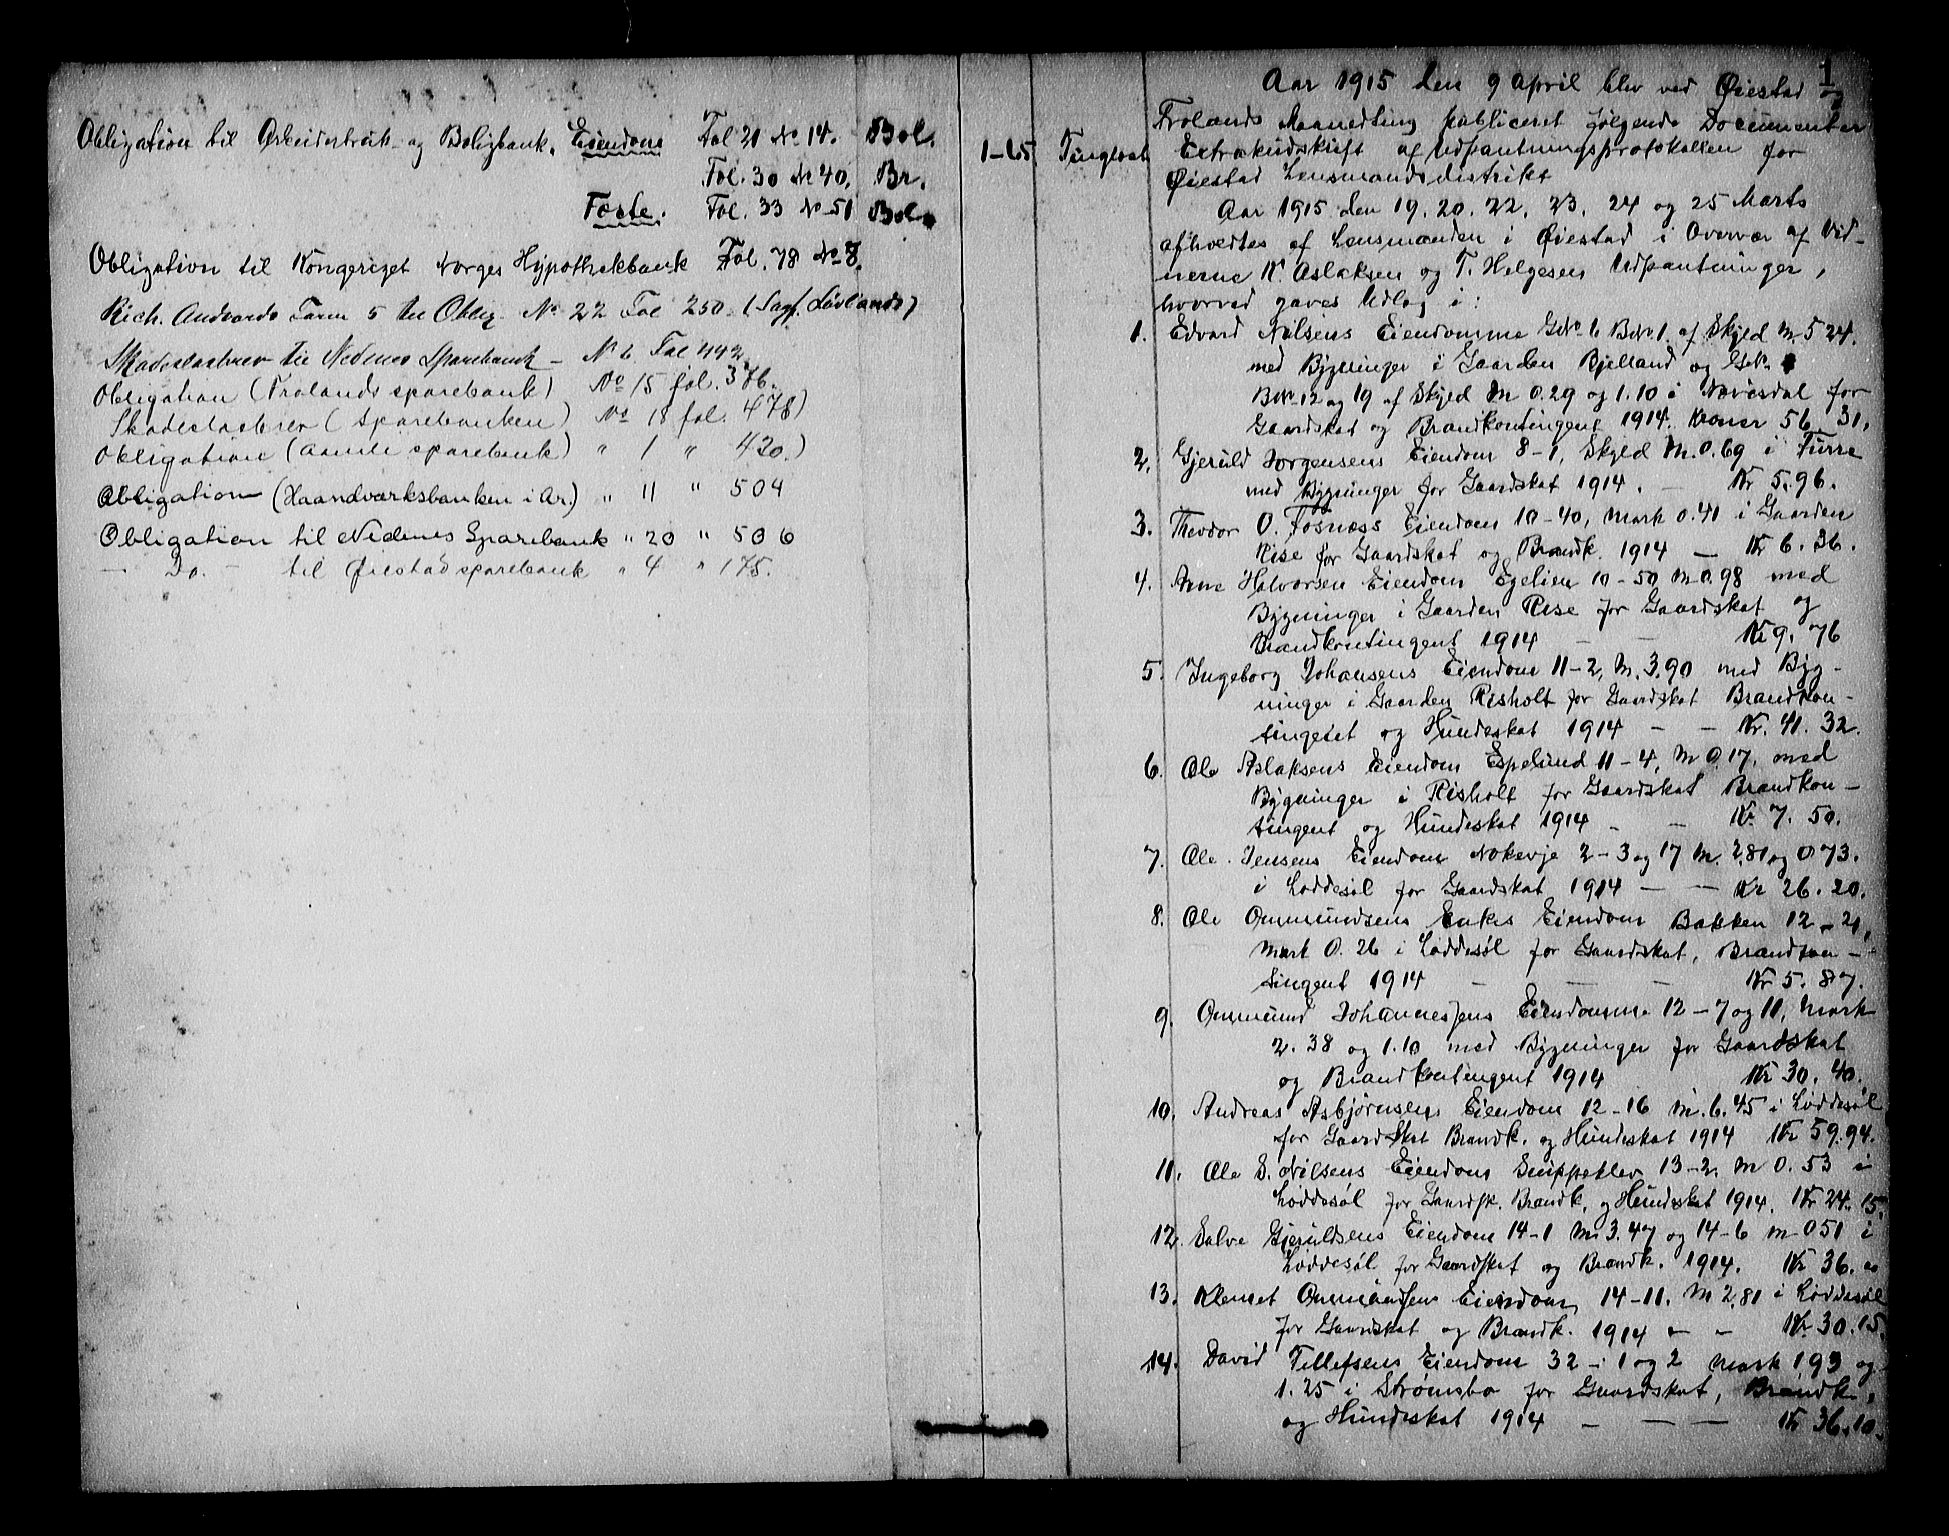 Obligation til Arbeiderbruk- og Boligbank. Eiendom Fol 21 No 14. Bol.
Fol. 30 No 40. Br.
Feste. Fol. 33 No 51 Bol.
Obligation til Kongeriget Norges Hypothekbank Fol. 78 No 8.
Rich. Andvords Form 5 til Oblig. No 22 Fol 250. (Sagf. Løvlands)
Skadesløsbrev til Nedenes Sparebank – No 6 Fol 442
Obligation (Frolands sparebank) No 15 fol. 376.
Skadesløsbrev (Sparebanken) No 18 fol. 478)
Obligation (Aamli sparebank) " 1 " 420.)
Obligation (Haandværksbanken i Ar.) " 11 " 504
Obligation til Nedenes Sparebank " 20 " 506
— Do. — til Øiestad sparebank " 4 " 175.
1
Aar 1915 den 9 April blev ved Øiestad og
Frolands Maanedting publiceret følgende Documenter
1-65 Tinglæst Extraktudskrift af Udpantningsprotokollen for
Øiestad Lensmandsdistrikt
Aar 1915 den 19. 20. 22. 23. 24 og 25 Marts
afholdtes af Lensmanden i Øiestad i Overvær af Vid-
nerne K. Aslaksen og T. Helgesen Udpantninger,
hvorved gaves Udlæg i:
1. Edvard Nilsens Eiendomme GNo 6 BNo 1. af Skyld M 5 24.
med Bygninger i Gaarden Bjelland og GNo
BNo 12 og 19 af Skyld M 0.29 og 1.10 i Nævesdal for
Gaardskat og Brandkontingent 1914. Kroner 56. 31.
2. Gjeruld Jorgensens Eiendom 8-1, Skyld M. 0.69 i Furre
med Bygninger for Gaardskat 1914. — Kr 5.96.
3. Theodor O. Fosnæss Eiendom 10-40, Mark 0.41 i Gaarden
Rise for Gaardskat og Brandk. 1914 — Kr 6. 36.
4. Arne Halvorsen Eiendom Egelien 10-50 M 0.98 med
Bygninger i Gaarden Rise for Gaardskat og
Brandkontingent 1914 — — Kr 9. 76
5. Ingeborg Johansens Eiendom 11-2, M. 3.90 med Byg-
ninger i Gaarden Risholt for Gaardskat Brandkon-
tingetet og Hundeskat 1914 — — Kr. 41. 32.
6. Ole Aslaksens Eiendom Espelund 11-4, M 0.17. med
Bygninger i Risholt for Gaardskat Brandkon-
tingent og Hundeskat 1914 — — Kr. 7. 50.
7. Ole Jensens Eiendom 2-3 og 17 M. 2.81 og 0 73.
i Løddesøl for Gaardskat 1914 — — Kr 26. 20.
8. Ole Ommundsens Enkes Eiendom Bakken 12-21,
Mark 0. 26 i Løddesøl for Gaardskat, Brandkon-
tingent 1914 — — — Kr 5. 87.
9. Ommund Johannesens Eiendomme 12-7 og 11, Mark
2. 38 og 1.10 med Bygninger for Gaardskat
og Brandkontingent 1914 Kr 30. 40.
10. Andreas Asbjørnsens Eiendom 12-16 M. 6.45 i Løddesøl
for Gaardskat Brandk. og Hundeskat 1914 Kr 59.94.
11. Ole S. Nilsens Eiendom 13-2. M 0. 53 i
Løddesøl for Gaardsk. Brandk. og Hundeskat 1914. Kr 24. 15.
12. Salve Gjeruldsens Eiendom 14-1 M 3.47 og 14-6 M 0 51 i
Løddesøl for Gaardskat og Brandk. 1914. Kr 36. 00
13. Klemet Ommundsens Eiendom 14-11. M 2.81 i Løddesøl
for Gaardskat og Brandk. 1914 — — Kr 30.15.
14. David Tellefsens Eiendom 32 - 1 og 2 Mark 193 og
1. 25 i Strømsbo for Gaardskat, Brandk.,
og Hundeskat 1914 — — — Kr 36.10.